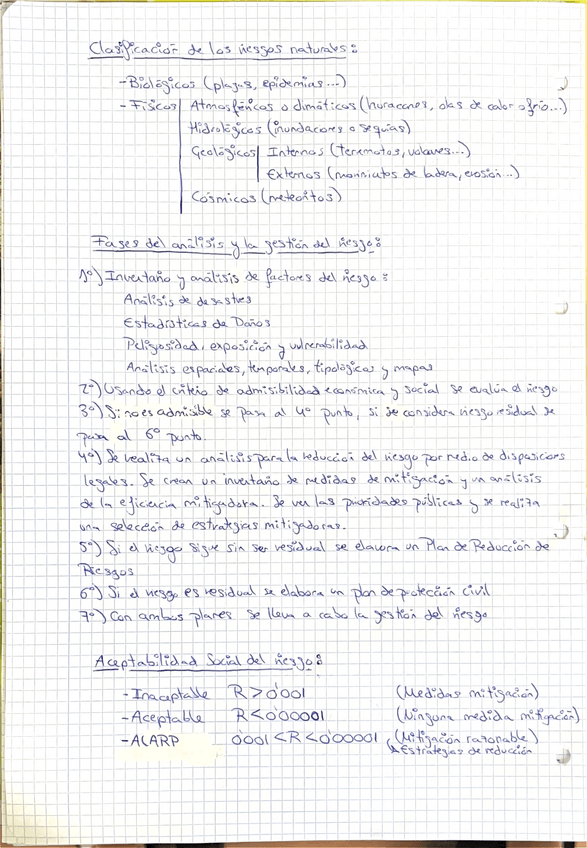 Clasificación de los riesgos naturales:
-Biológicos (plagas, epidemias...)
-Físicos Atmosféricos o climáticos (huracanes, olas de calor o frío...)
Hidrológicos (inundaciones o sequías)
Geológicos Internos (terremotos, volcanes...)
Externos (movimientos de ladera, erosión...)
Cósmicos (meteoritos)
Fases del análisis y la gestión del riesgo:
1º) Inventario y análisis de factores del riesgo:
Análisis de desastres
Estadísticas de Daños
Peligrosidad, exposición y vulnerabilidad
Análisis espaciales, temporales, tipológicos y mapas
2º) Usando el criterio de admisibilidad económica y social se evalúa el riesgo
3º) Si no es admisible se pasa al 4º punto, si se considera riesgo residual se
pasa al 6º punto.
4º) Se realiza un análisis para la reducción del riesgo por medio de disposiciones
legales. Se crean un inventario de medidas de mitigación y un análisis
de la eficiencia mitigadora. Se ven las prioridades públicas y se realiza
una selección de estrategias mitigadoras.
5º) Si el riesgo sigue sin ser residual se elabora un Plan de Reducción de
Riesgos
6º) Si el riesgo es residual se elabora un plan de protección civil
7º) Con ambos planes se lleva a cabo la gestión del riesgo
Aceptabilidad Social del riesgo:
-Inaceptable R>0'001 (Medidas mitigación)
-Aceptable R<0'00001 (Ninguna medida mitigación)
-ALARP 0'001<R<0'00001 (Mitigación razonable)
Estrategias de reducción